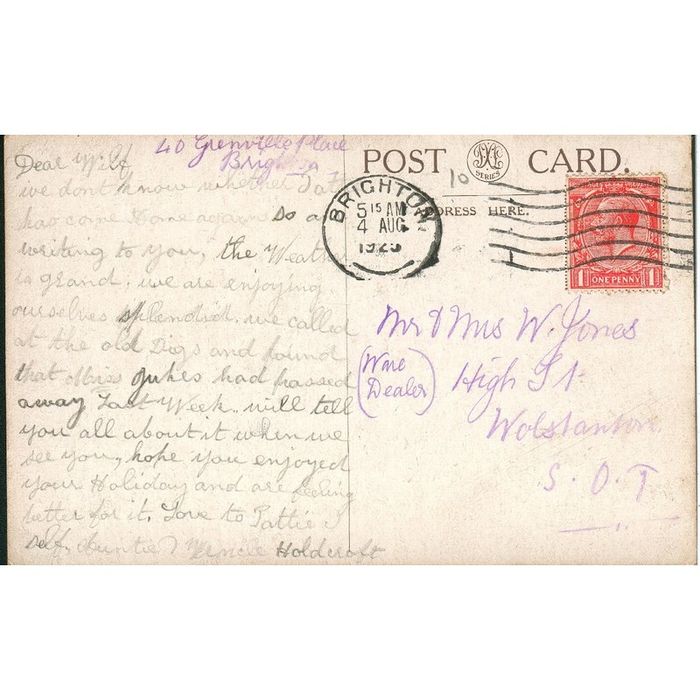 40 Grenville Place
Brighton
Dear Wilf
we don't know whether Patt
has come home again so a
writing to you, the Weather
is grand, we are enjoying
ourselves splendid. we called
at the old Digs and found
that Miss Jukes had passed
away Last Week. will tell
you all about it when we
see you, hope you enjoyed
your Holiday and are feeling
better for it. Love to Pattie &
self. Auntie & Uncle Holdcroft
POST CARD.
SERIES
10
ADDRESS HERE.
BRIGHTON
5 15 AM
4 AUG
192
ONE PENNY
1 1
Mr & Mrs W. Jones
(Ware
Dealer)
High St
Wolstanton
S.O.T